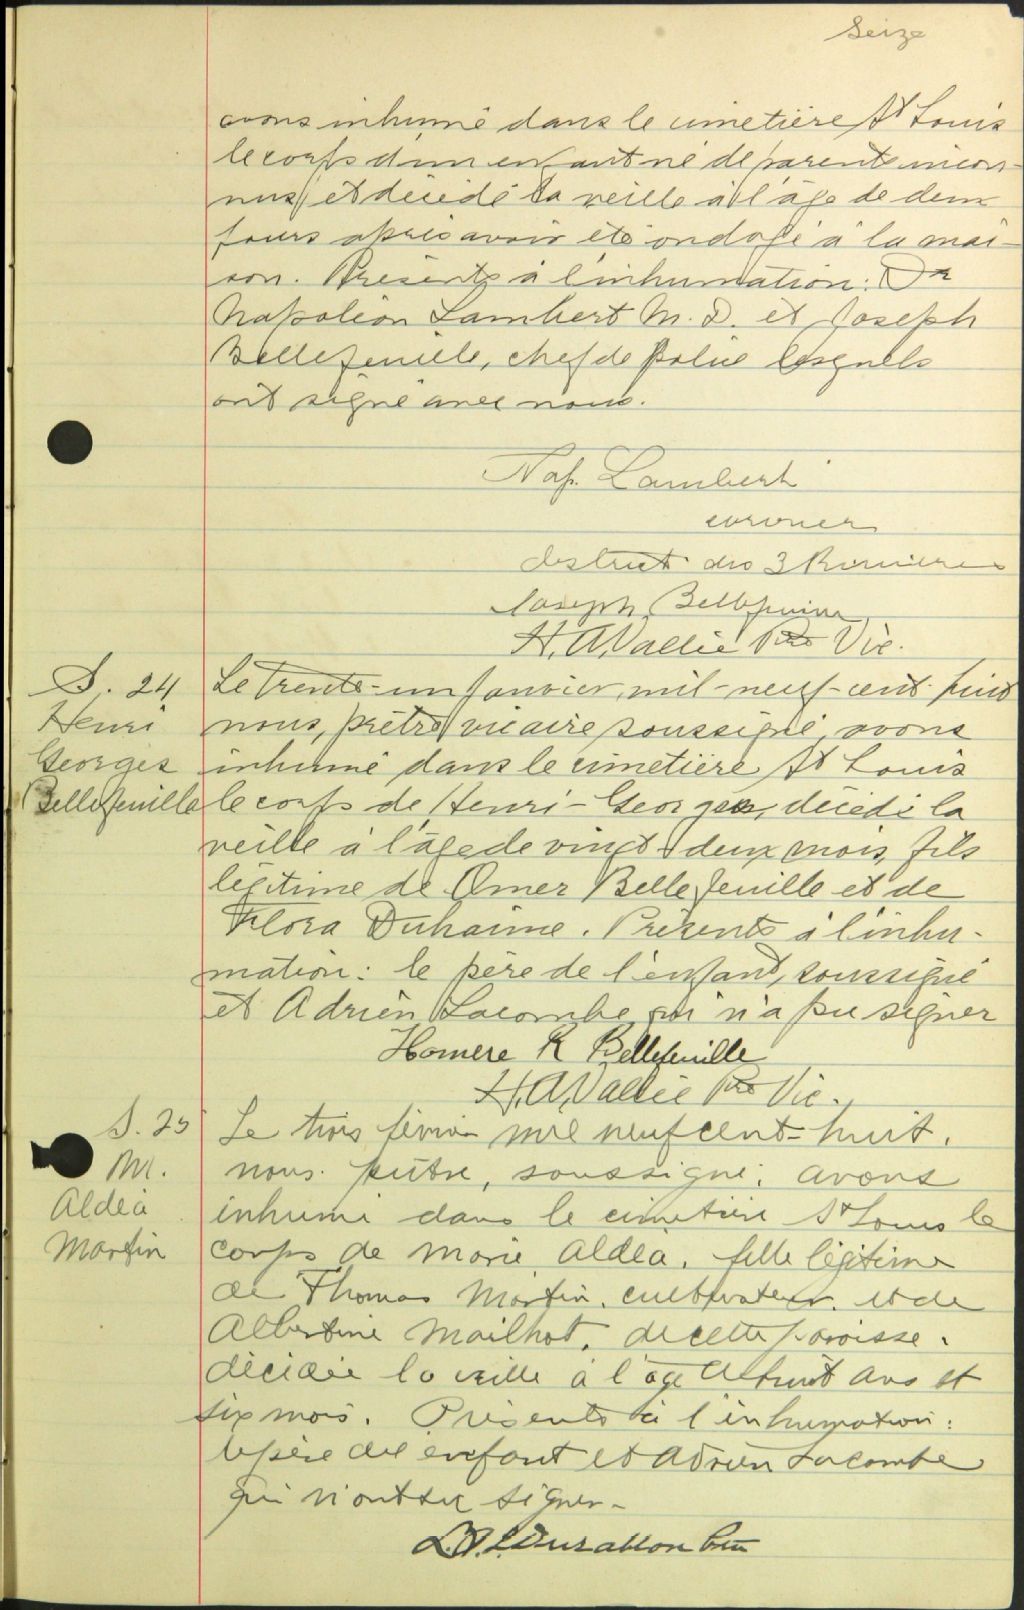 Seize
avons inhumé dans le cimetière St Louis
le corps d'un enfant né de parents incon-
nus et décédé la veille à l'âge de deux
jours après avoir été ondoyé à la mai-
son. Présents à l'inhumation: Dr
Napoléon Lambert M. D. et Joseph
Bellefeuille, chef de police lesquels
ont signé avec nous.
Nap. Lambert
coroner
district des 3 Rivières
Joseph Bellefeuille
H. A. Vallée Ptre Vic.
S. 24
Henri
Georges
Bellefeuille
Le trente-un janvier, mil-neuf-cent-huit
nous, prêtre vicaire soussigné, avons
inhumé dans le cimetière St Louis
le corps de Henri-Georges, décédé la
veille à l'âge de vingt-deux mois, fils
légitime de Omer Bellefeuille et de
Flora Duhaime. Présents à l'inhu-
mation: le père de l'enfant, soussigné
et Adrien Lacombe qui n'a pu signer
Homere R Bellefeuille
H. A. Vallée Ptre Vic.
S. 25
M.
Aldéa
Martin
Le trois février mil neuf cent-huit,
nous prêtre, soussigné, avons
inhumé dans le cimetière St Louis le
corps de Marie Aldéa, fille légitime
de Thomas Martin, cultivateur, et de
Albertine Mailhot, de cette paroisse,
décédée la veille à l'âge de huit ans et
six mois. Présents à l'inhumation:
le père de l'enfant et Adrien Lacombe
qui n'ont su signer-